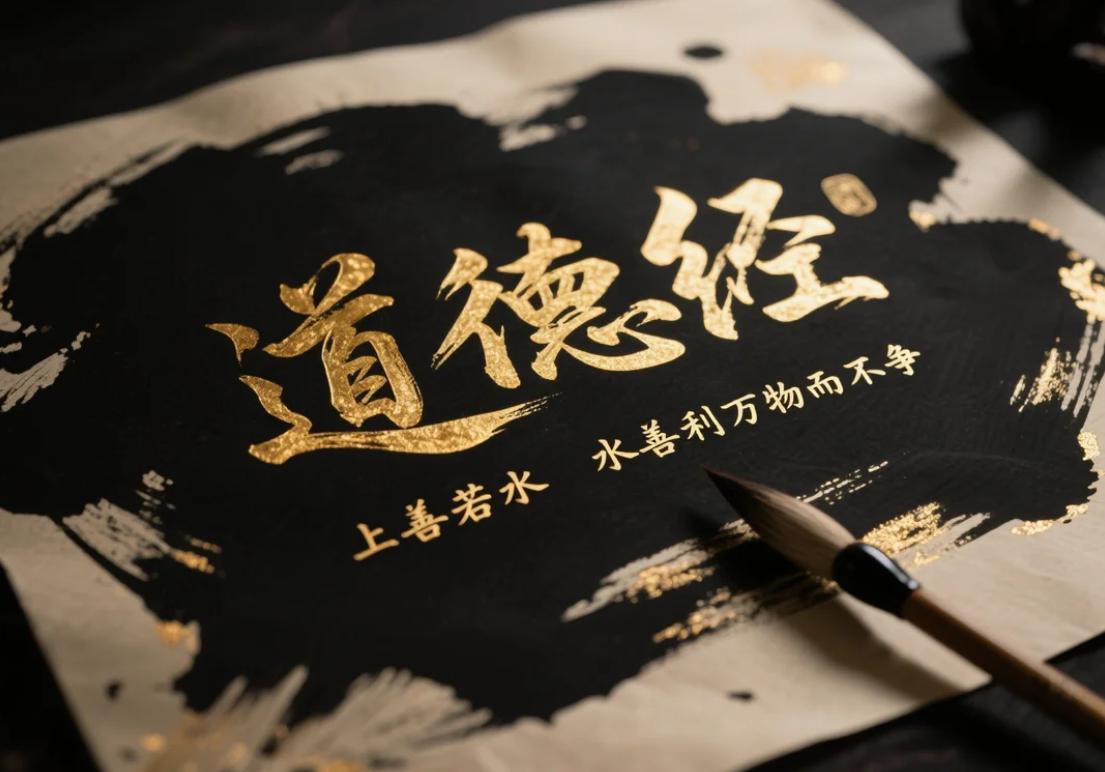 道德经
上善若水 水善利万物而不争